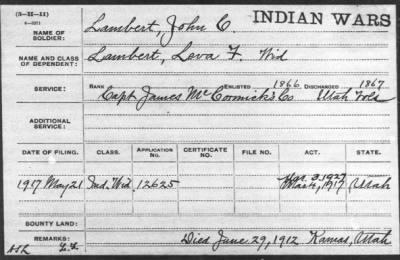 (3-II-11)
INDIAN WARS
NAME OF SOLDIER: Lambert, John C.
NAME AND CLASS OF DEPENDENT: Lambert, Leva F. Wid
SERVICE: RANK ENLISTED 1866, DISCHARGED 1867
Capt James McCormick's Co Utah Vols
ADDITIONAL SERVICE:
DATE OF FILING. CLASS. APPLICATION No. CERTIFICATE No. FILE NO. ACT. STATE.
Mar. 3, 1927
1917 May 21 Ind. Wid. 12625 Mar 4, 1917 Utah
BOUNTY LAND:
REMARKS: Died June 29, 1912 Kamas, Utah